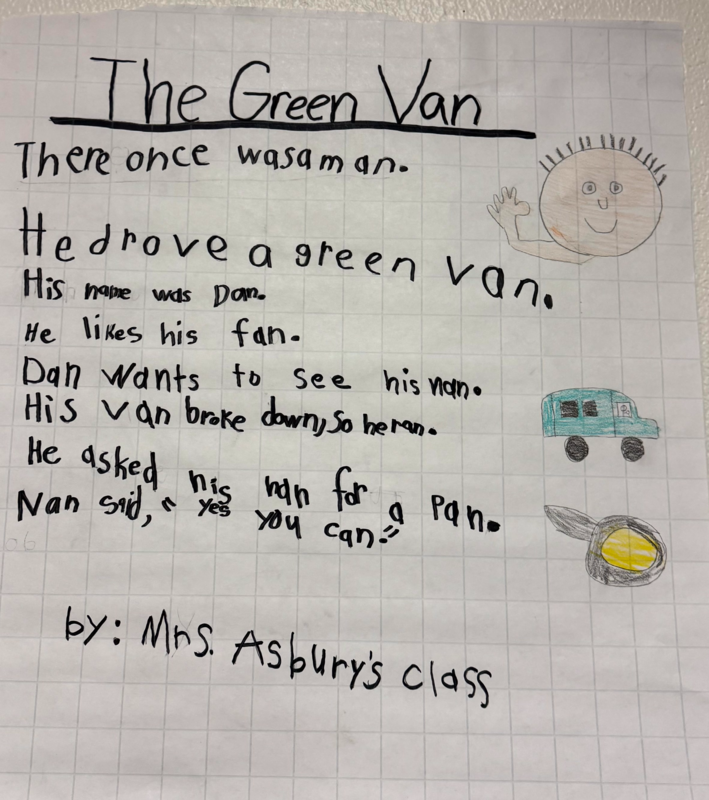 The Green Van
There once was a man.
He drove a green van.
His name was Dan.
He likes his fan.
Dan wants to see his nan.
His van broke down, so he ran.
He asked his nan for a pan.
Nan said, "yes you can."
by: Mrs. Asbury's class